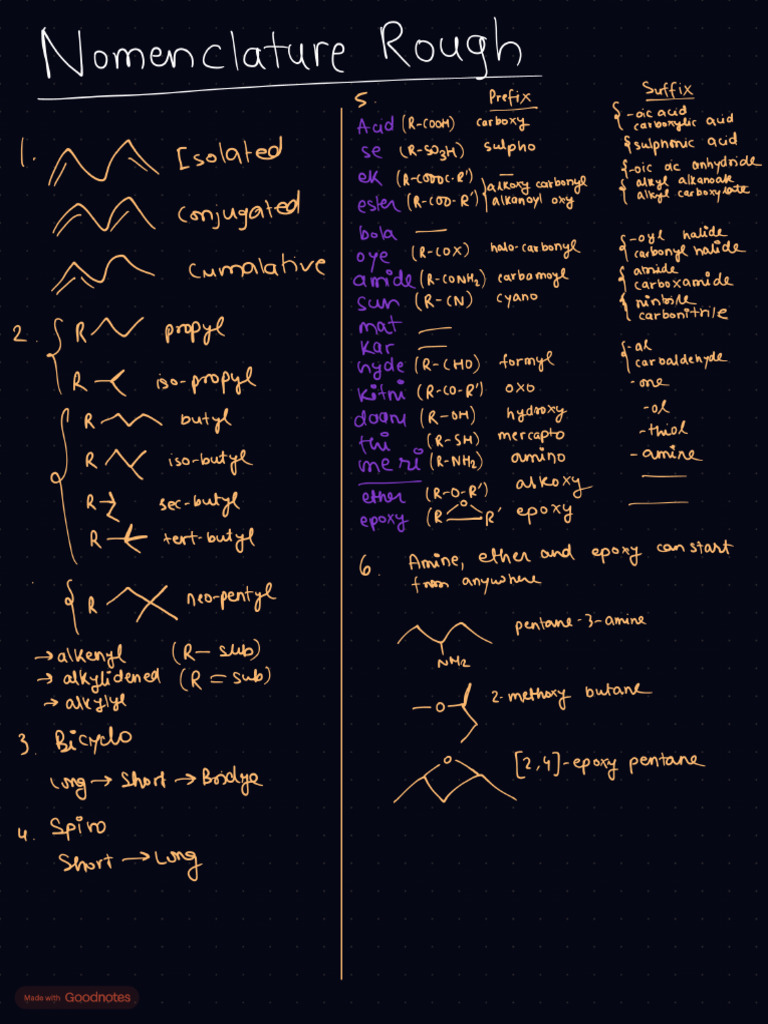 Nomenclature Rough
1. Isolated
Conjugated
Cumalative
2. R propyl
R iso-propyl
R butyl
R iso-butyl
R sec-butyl
R tert-butyl
R neo-pentyl
→ alkenyl (R— sub)
→ alkylidened (R = sub)
→ alkylyl
3. Bicyclo
Long → Short → Bridge
4. Spiro
Short → Long
5. Prefix Suffix
Acid (R-COOH) carboxy -oic acid
carboxylic acid
se (R-SO3H) sulpho sulphonic acid
ek — -oic ic anhydride
ester (R-COO-R') alkoxy carbonyl alkyl alkanoate
alkanoyl oxy alkyl carboxylate
bola —
oye (R-COX) halo-carbonyl -oyl halide
carbonyl halide
amide (R-CONH2) carbamoyl amide
carboxamide
sun (R-CN) cyano
carbonitrile
mat —
kar —
hyde (R-CHO) formyl -al
carbaldehyde
kitni (R-CO-R') oxo -one
(R-OH) hydroxy -ol
thi (R-SH) mercapto -thiol
meri (R-NH2) amino -amine
ether (R-O-R') alkoxy —
epoxy (R O R' epoxy —
6. Amine, ether and epoxy can start
from anywhere
pentane-3-amine
NH2
-O- 2-methoxy butane
O [2,4]-epoxy pentane
Made with Goodnotes